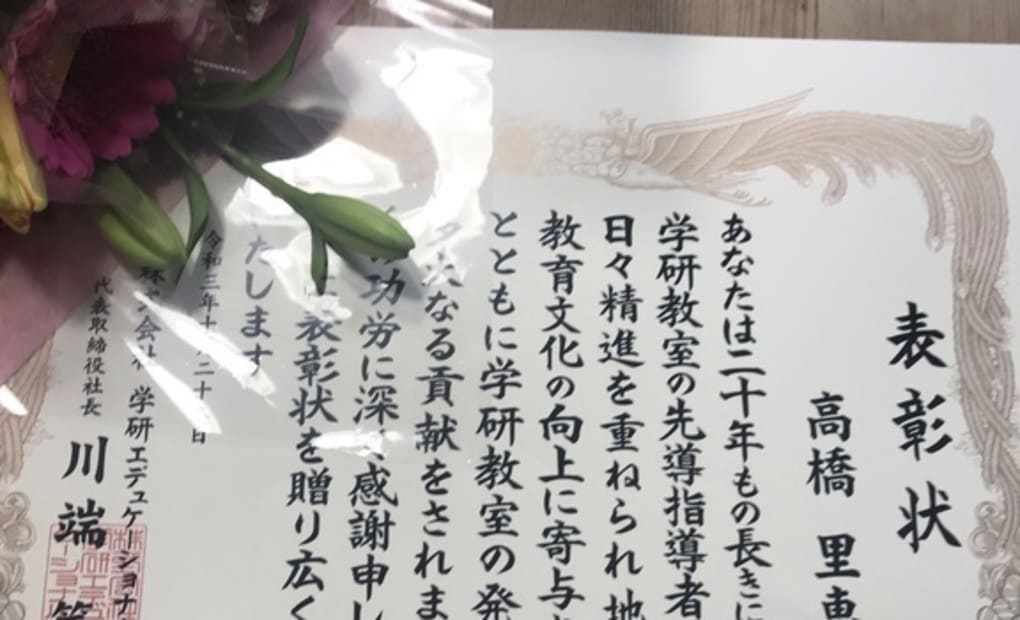 表彰状
高橋 里恵
あなたは二十年もの長きに
学研教室の先導指導者
日々精進を重ねられ地
教育文化の向上に寄与
とともに学研教室の発
多大なる貢献をされま
功労に深く感謝申し
表彰状を贈り広く
たします
令和三年十 二十 日
株式会社 学研エデュケーショナ
代表取締役社長
川端